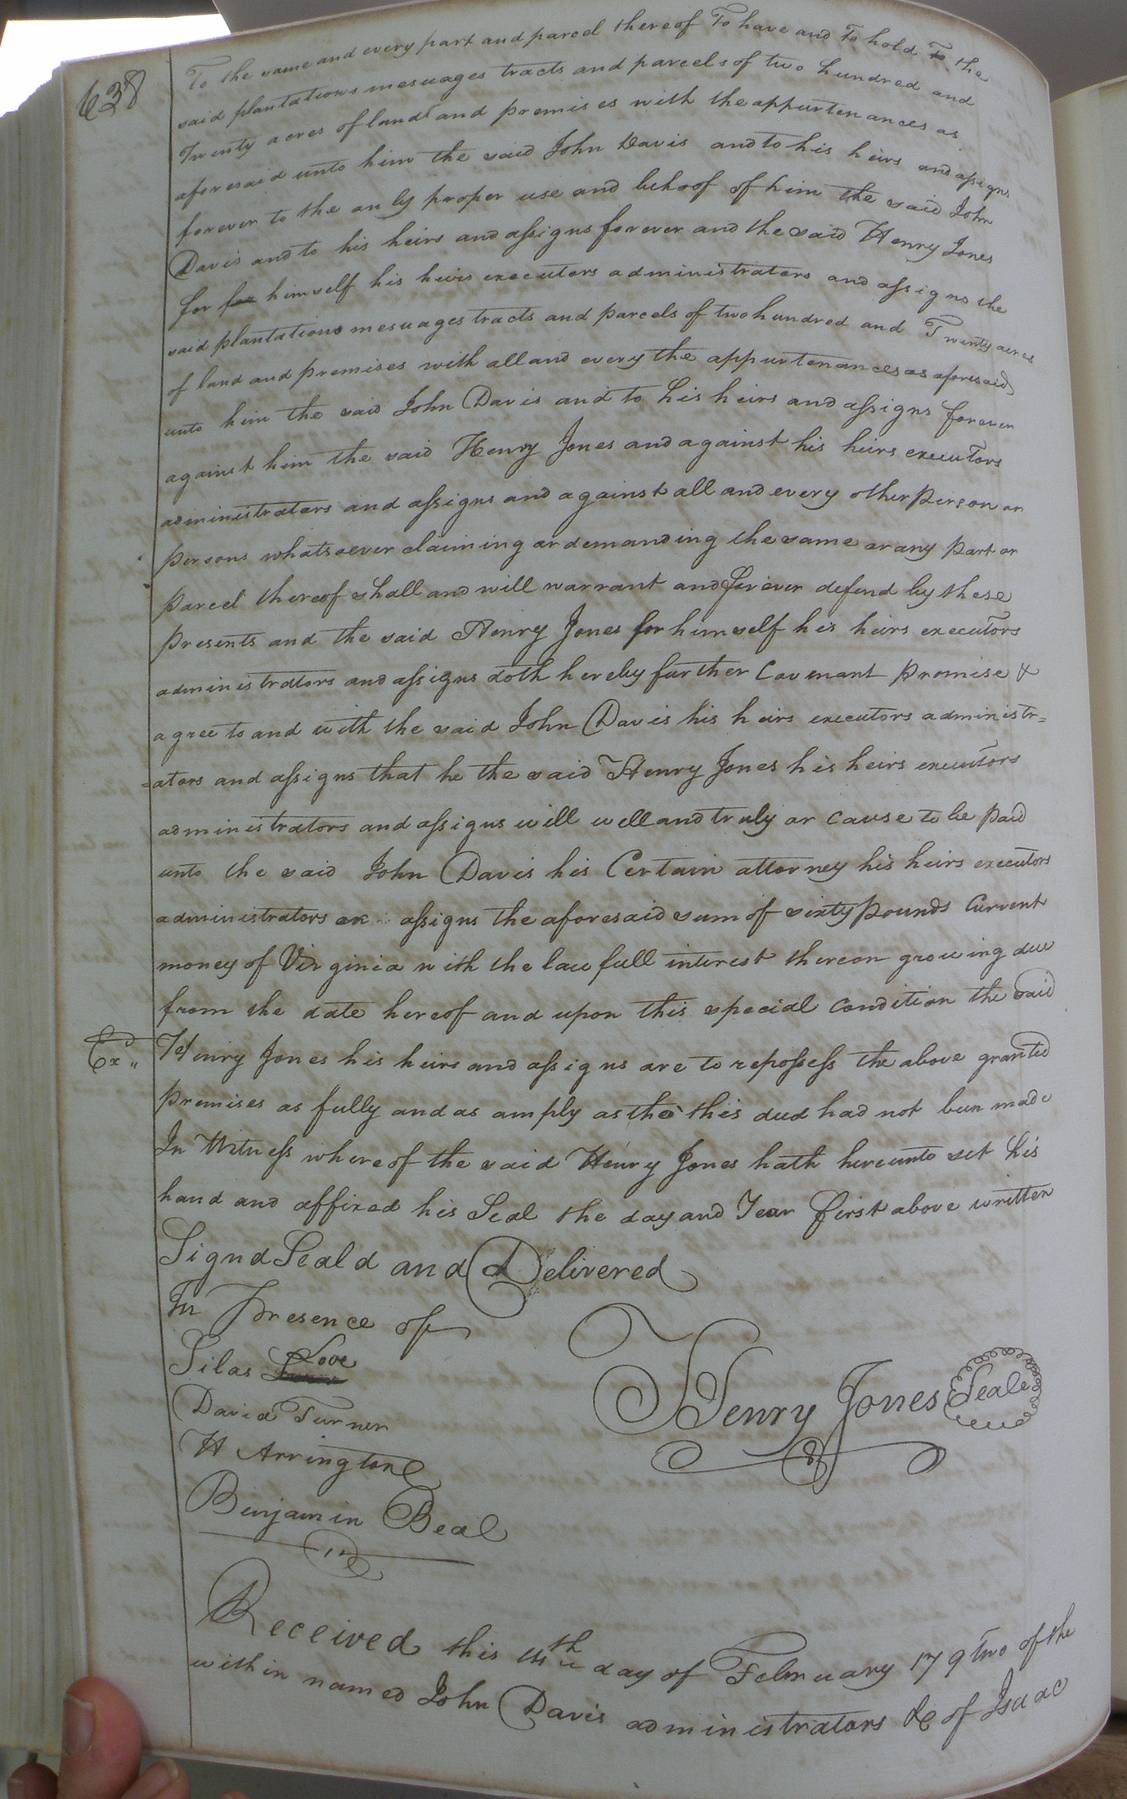 638
To the same and every part and parcel thereof To have and To hold To the
said plantations mesuages tracts and parcels of two hundred and
Twenty acres of land and premises with the appurtenances as
aforesaid unto him the said John Davis and to his heirs and assigns
forever to the only proper use and behoof of him the said John
Davis and to his heirs and assigns forever and the said Henry Jones
for for himself his heirs executors administrators and assigns the
said plantations mesuages tracts and parcels of two hundred and Twenty acres
of land and premises with all and every the appurtenances as aforesaid
unto him the said John Davis and to his heirs and assigns forever
against him the said Henry Jones and against his heirs executors
administrators and assigns and against all and every other person or
persons whatsoever claiming or demanding the same or any part or
parcel thereof shall and will warrant and forever defend by these
presents and the said Henry Jones for himself his heirs executors
administrators and assigns doth hereby further Covenant promise &
agree to and with the said John Davis his heirs executors administr=
=ators and assigns that he the said Henry Jones his heirs executors
administrators and assigns will well and truly or cause to be paid
unto the said John Davis his Certain attorney his heirs executors
administrators or assigns the aforesaid sum of sixty pounds Current
money of Virginia with the lawfull interest thereon growing due
from the date hereof and upon this special condition the said
Ex"
Henry Jones his heirs and assigns are to repossess the above granted
premises as fully and as amply as tho this deed had not been made
In Witness whereof the said Henry Jones hath hereunto set his
hand and affixed his Seal the day and Year first above written
Signd Seald and Delivered
In Presence of
Silas Love
David Turner
H Arrington
Benjamin Beal
Henry Jones Seal
Received this day of February 179two of the
within named John Davis administrators &c of Isaac